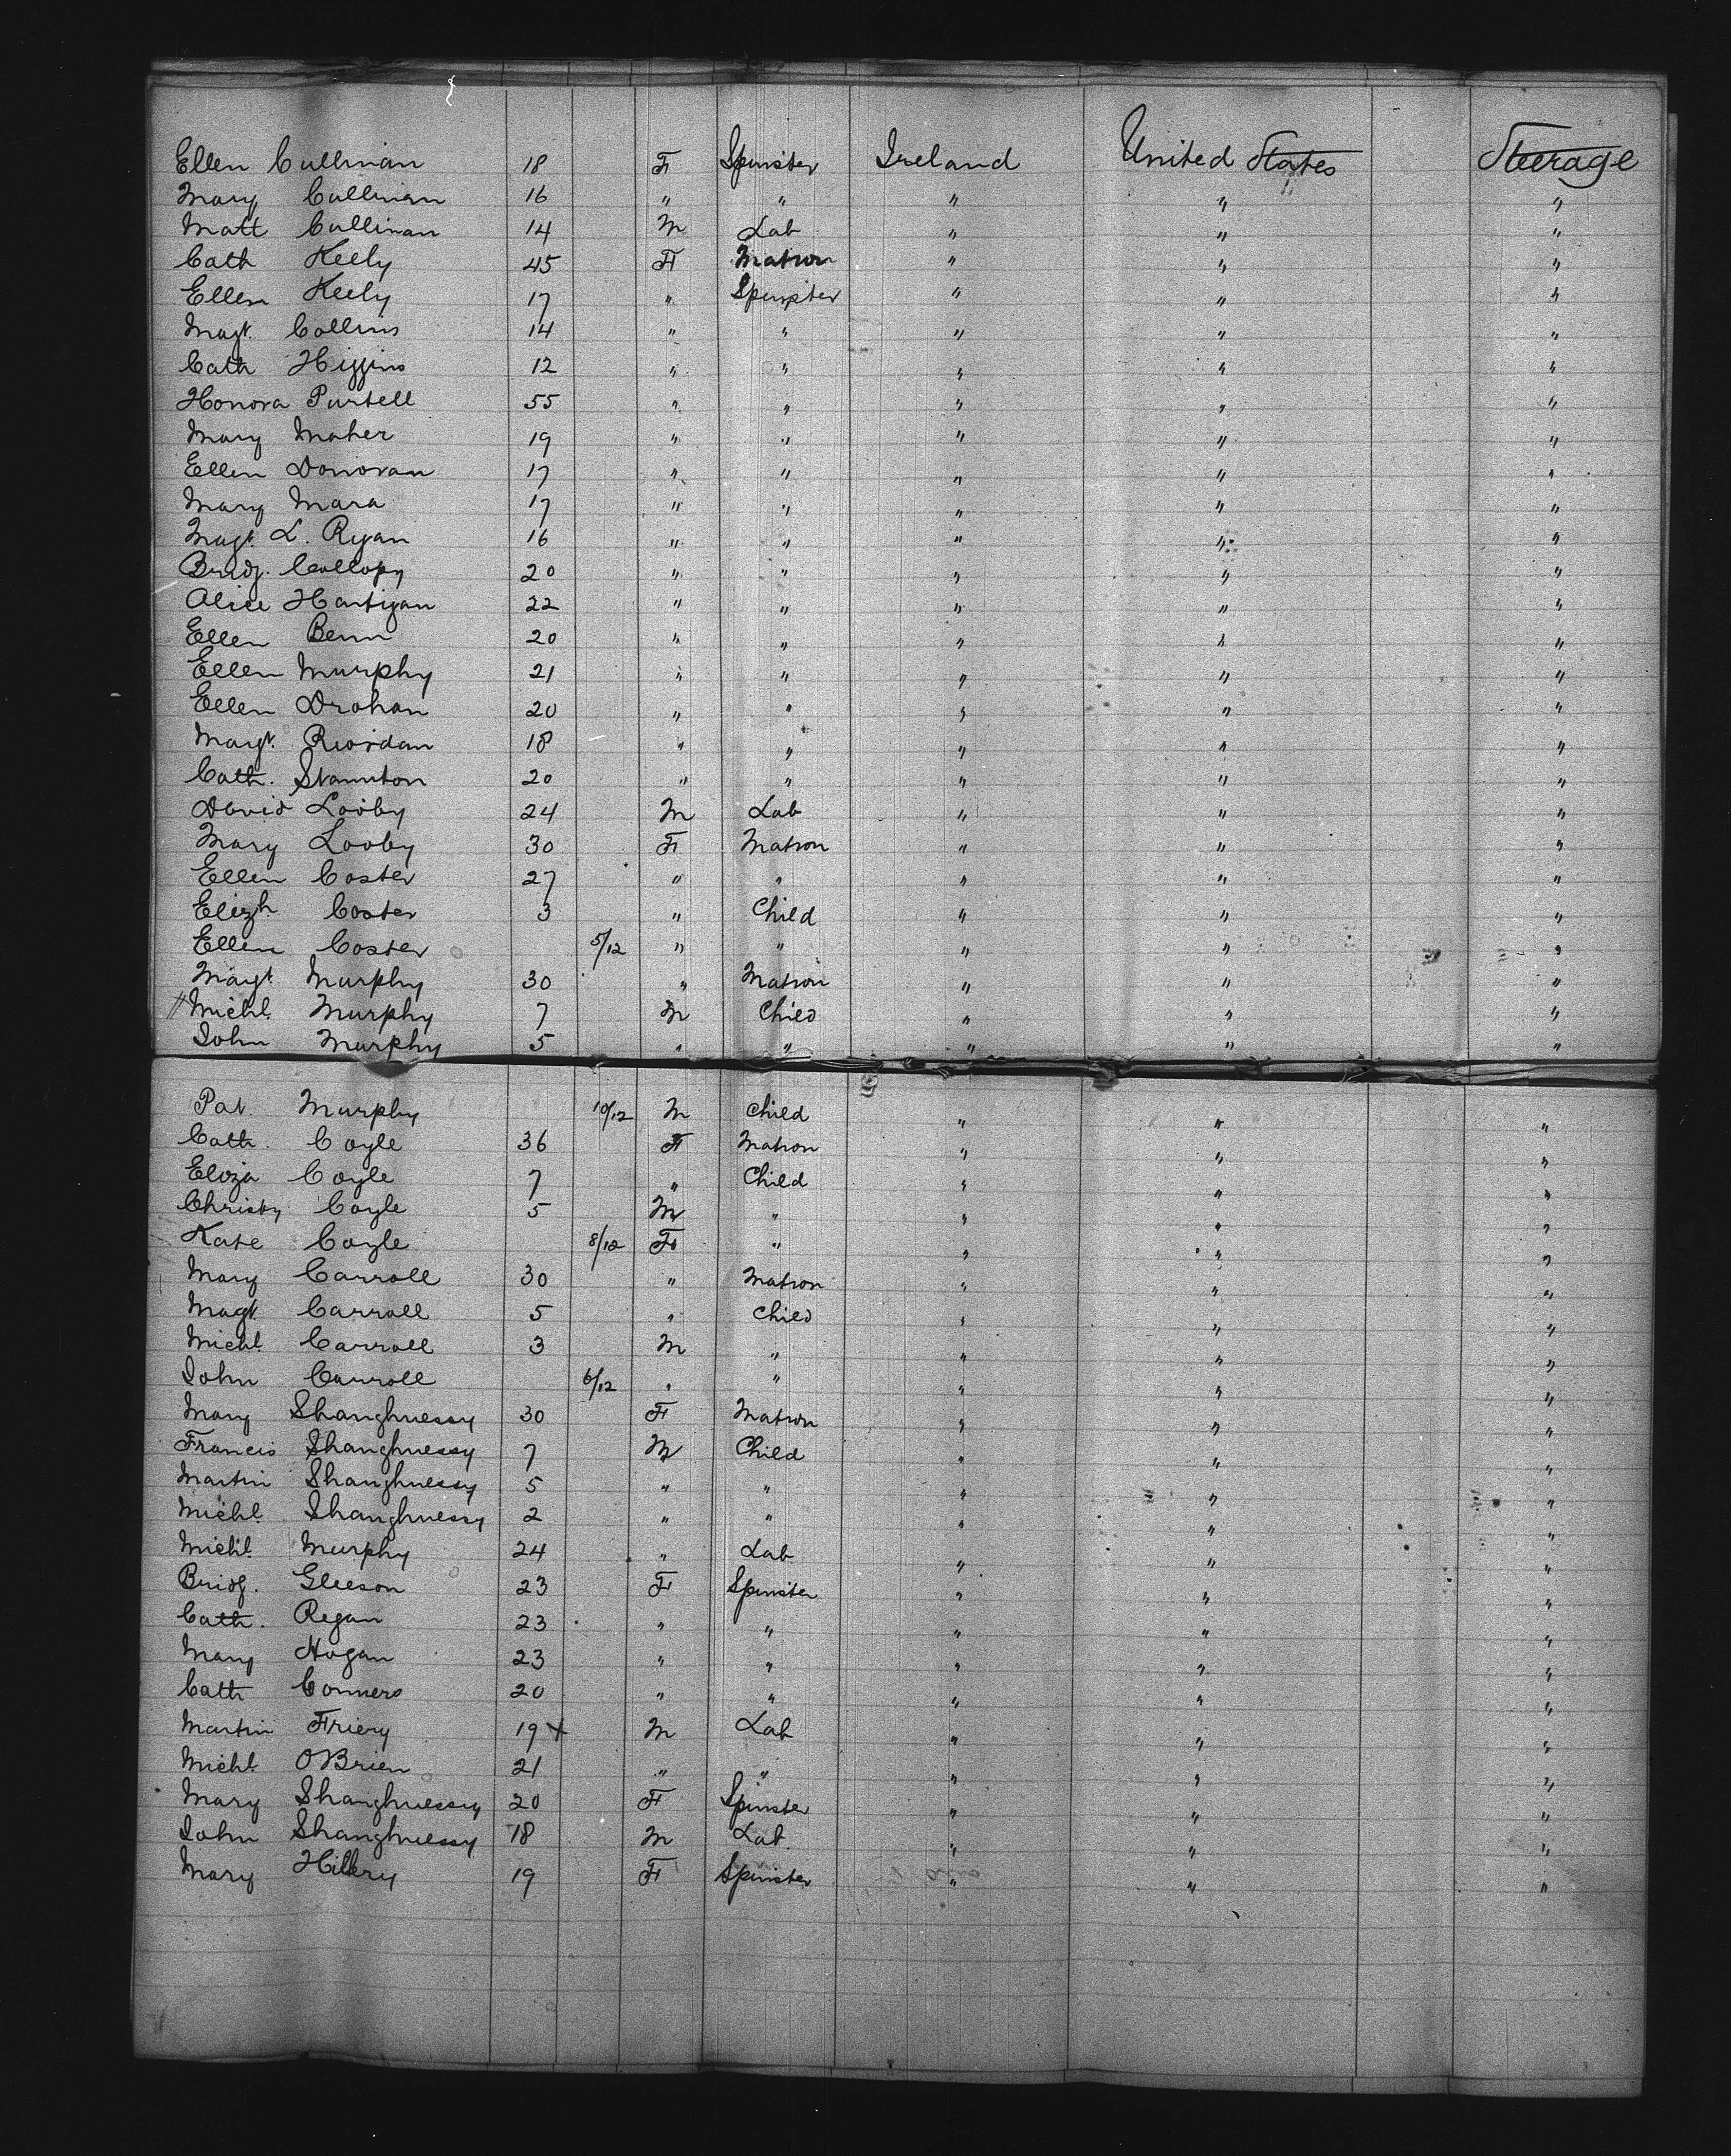 Ellen Cullinan 18 F Spinster Ireland United States Steerage
Mary Cullinan 16 " " " " "
Matt Cullinan 14 M Lab " " "
Cath Keely 45 F Matron " " "
Ellen Keely 17 " Spinster " " "
Magt. Collins 14 " " " " "
Cath Higgins 12 " " " " "
Honora Purtell 55 " " " " "
Mary Maher 19 " " " " "
Ellen Donovan 17 " " " " "
Mary Mara 17 " " " " "
Magt. L. Ryan 16 " " " " "
Bridg. Collopy 20 " " " " "
Alice Hartigan 22 " " " " "
Ellen Benn 20 " " " " "
Ellen Murphy 21 " " " " "
Ellen Drohan 20 " " " " "
Margt. Riordan 18 " " " " "
Cath. Staunton 20 " " " " "
David Looby 24 M Lab " " "
Mary Looby 30 F Matron " " "
Ellen Coster 27 " " " " "
Elizh Coster 3 " Child " " "
Ellen Coster 5/12 " " " " "
Margt Murphy 30 " Matron " " "
Michl. Murphy 7 M Child " " "
John Murphy 5 " " " " "
Pat. Murphy 10/12 M Child " " "
Cath. Coyle 36 F Matron " " "
Eliza Coyle 7 " Child " " "
Christy Coyle 5 M " " " "
Kate Coyle 8/12 F " " " "
Mary Carroll 30 " Matron " " "
Magt. Carroll 5 " Child " " "
Michl. Carroll 3 M " " " "
John Carroll 6/12 " " " " "
Mary Shanghnessy 30 F Matron " " "
Francis Shanghnessy 7 M Child " " "
Martin Shanghnessy 5 " " " " "
Michl. Shanghnessy 2 " " " " "
Michl. Murphy 24 " Lab " " "
Bridg. Gleeson 23 F Spinster " " "
Cath. Regan 23 " " " " "
Mary Hogan 23 " " " " "
Cath Conners 20 " " " " "
Martin Friery 19 x M Lab " " "
Michl. OBrien 21 " " " " "
Mary Shanghnessy 20 F Spinster " " "
John Shanghnessy 18 M Lab. " " "
Mary Hillery 19 F Spinster " " "